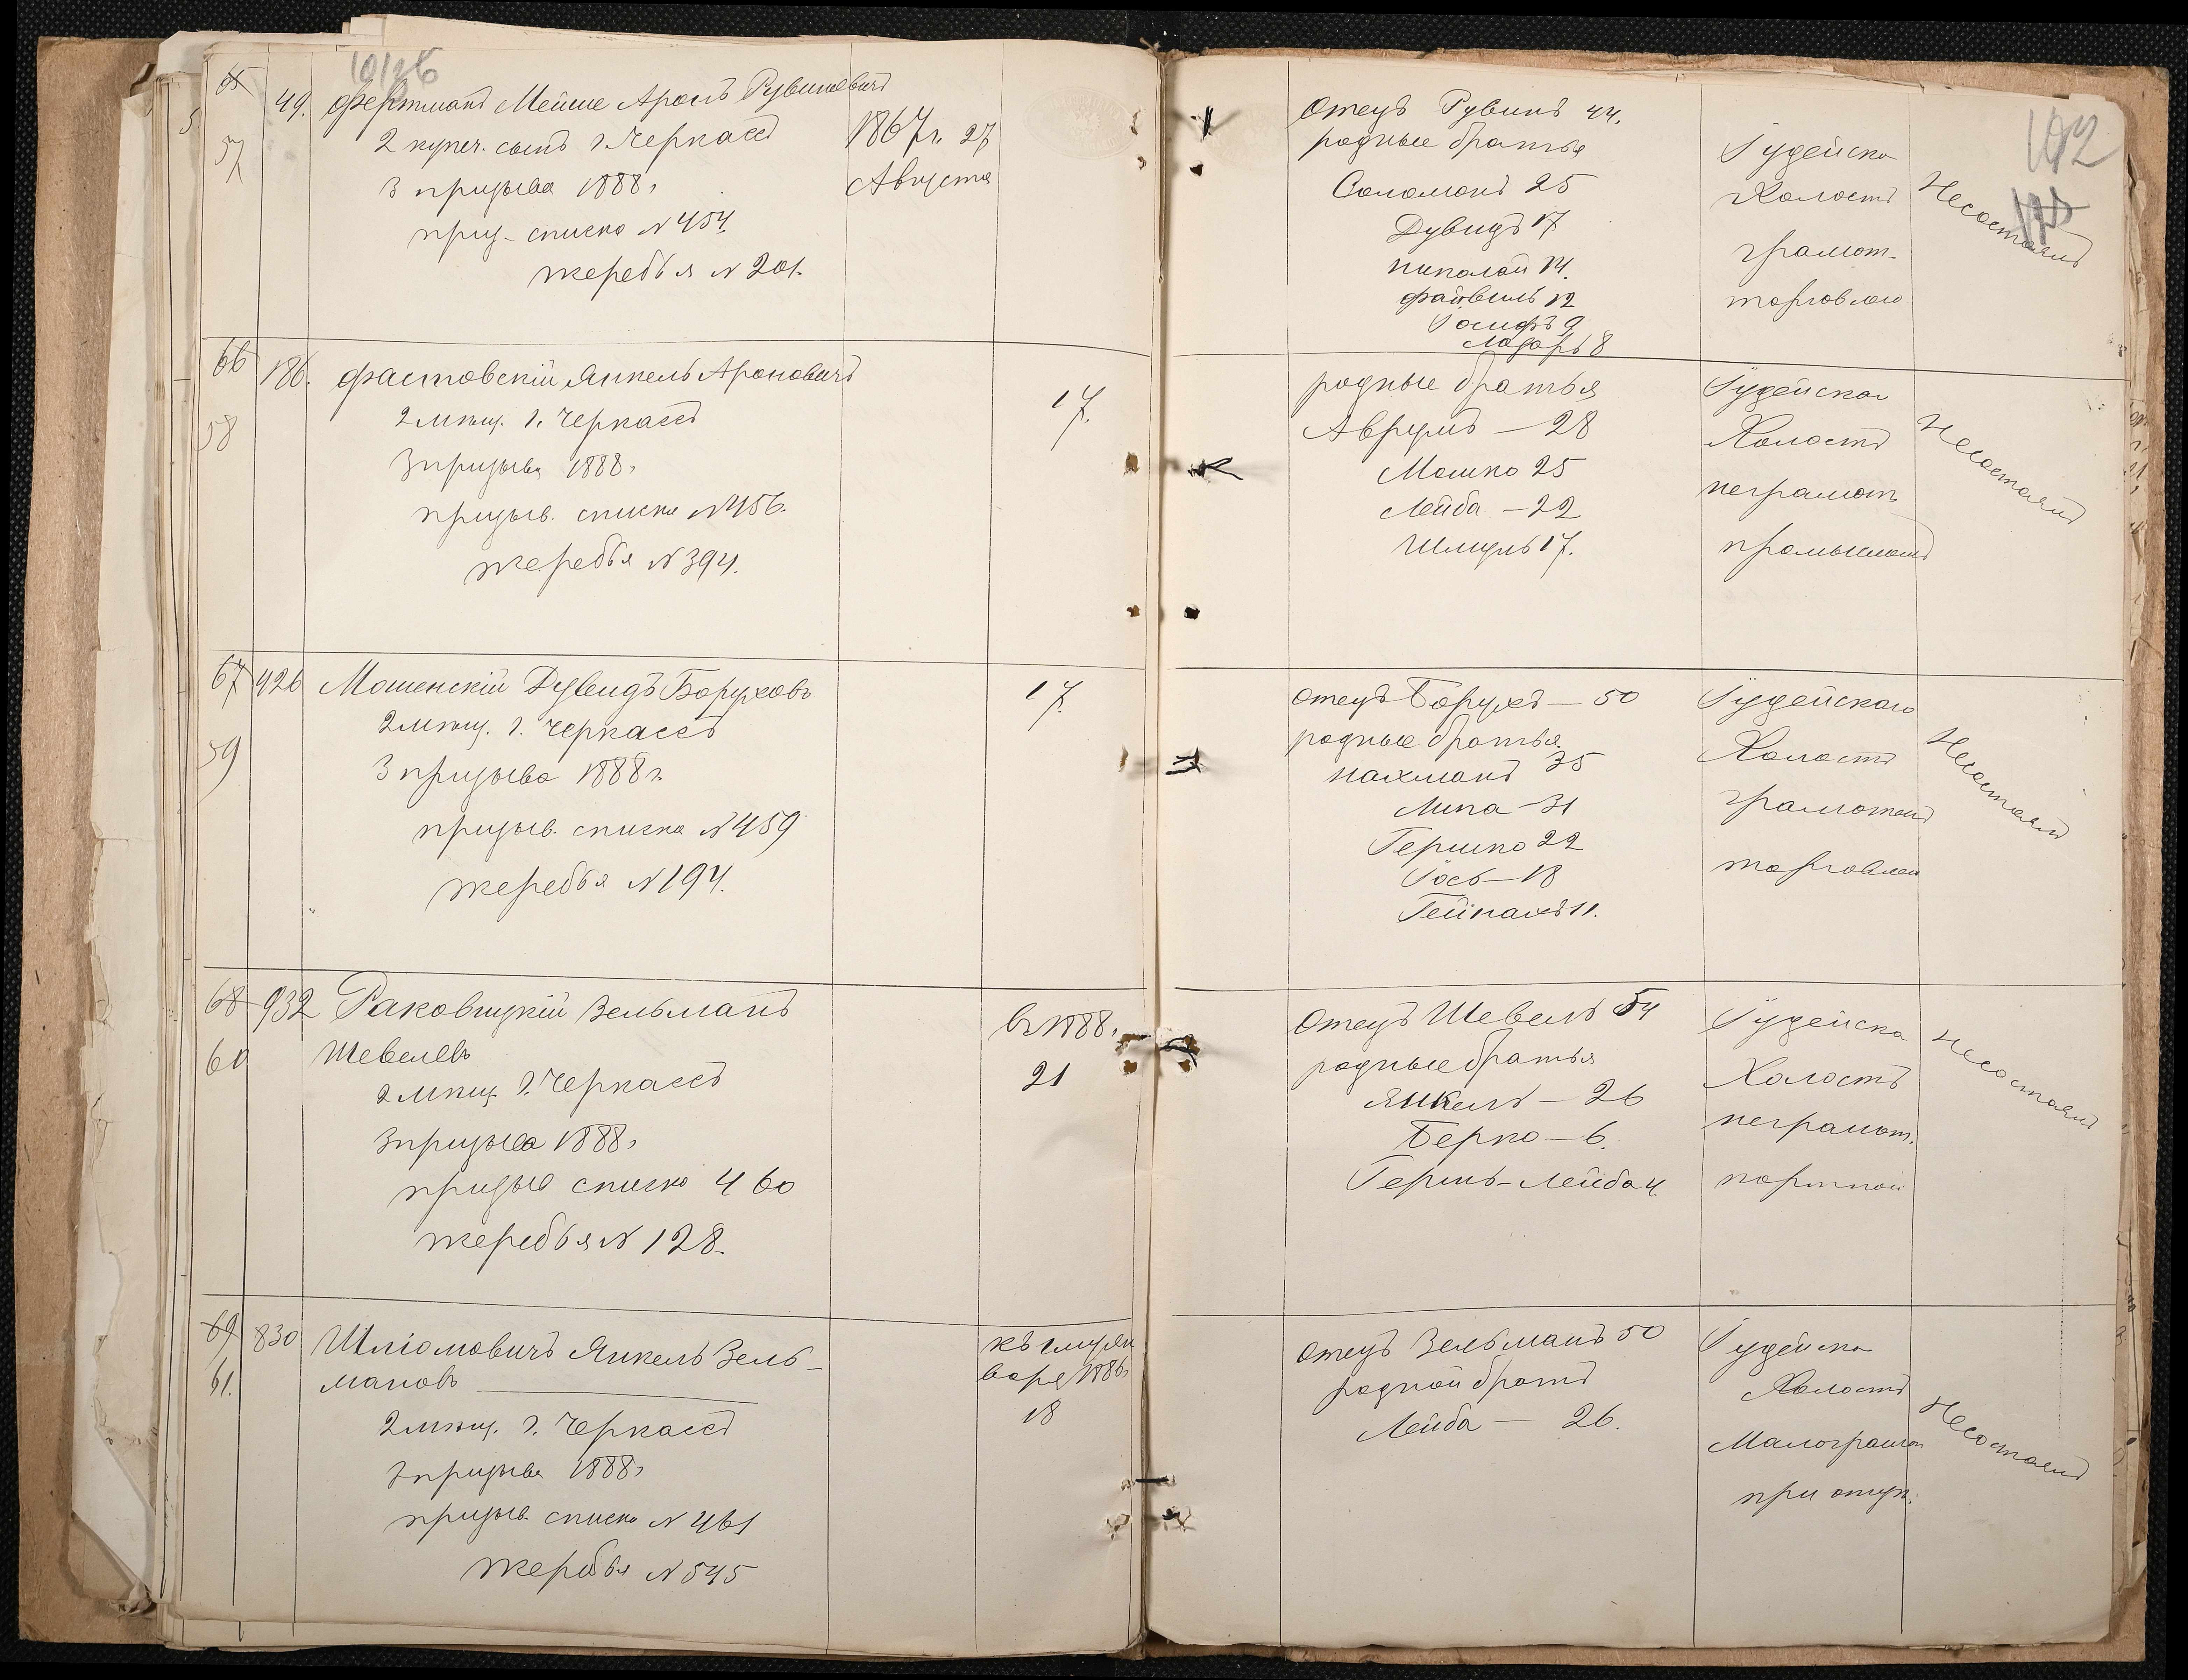 65 49. Фертманъ Мейше Аронъ Рувиновичъ
57 2 купеч. сынъ г. Черкассъ 1867 г. 27
3 призыва 1888 г. Августа
приз. списка № 454.
жеребья № 201.
Отецъ Рувинъ 44.
родные братья
Соломонъ 25
Дувидъ 17
Николай 14.
Файвель 12
Іосифъ 9
Лазарь 8
Іудейска
Холостъ
грамот.
торговлею
Несостоялъ
102
66 186. Фастовскій Янкель Ароновичъ
58 2 мѣщ. г. Черкассъ 17.
3 призыва 1888 г.
призыв. списка № 456.
жеребья № 394.
родные братья
Аврумъ — 28
Мошко 25
Лейба — 22
Шмуль 17.
Іудейска
Холостъ
неграмотн
промысломъ
Несостоялъ
67 426 Мошенскій Дувидъ Боруховъ 17.
59 2 мѣщ. г. Черкассъ
3 призыва 1888 г.
призыв. списка № 459
жеребья № 194.
Отецъ Борухъ — 50
родные братья
Нахманъ 35
Липа — 31
Гершко 22
Іось — 18
Іудейскаго
Холостъ
грамотенъ
торговлей
Несостоялъ
68 932 Раковицкій Зельманъ въ 1888 г.
60 Шевелевъ 21
2 мѣщ. г. Черкассъ
3 призыва 1888 г.
призыв списка 460
жеребья № 128.
Отецъ Шевель 54
родные братья
Янкель — 26
Берко — 6.
Гершь-Лейба 4.
Іудейска
Холостъ
неграмот.
портной
Несостоялъ
69 830 Шліомовичъ Янкель Зель-
61. мановъ къ 1му ян
варя 1886 г
18
2 мѣщ. г. Черкассъ
3 призыва 1888 г
призыв. списка № 461
жеребья № 545
Отецъ Зельманъ 50
родной братъ
Лейба — 26.
Іудейска
Холостъ
Малограмот
при отцѣ.
Несостоялъ